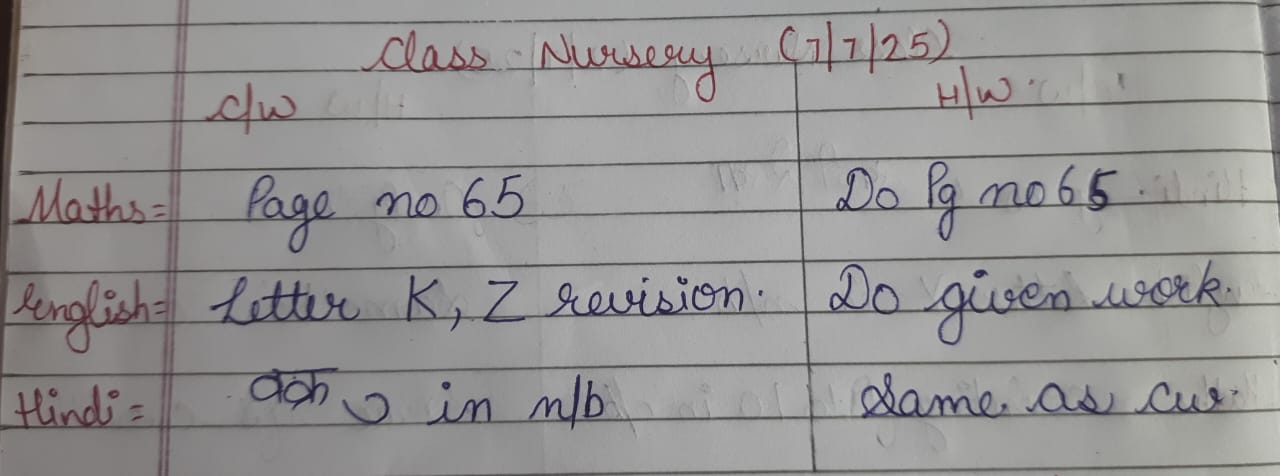 Class Nursery (7/7/25)
C/W H/W
Maths= Page no 65 Do Pg no 65.
English= Letter K, Z revision. Do given work.
Hindi= in n/b Same as cw.